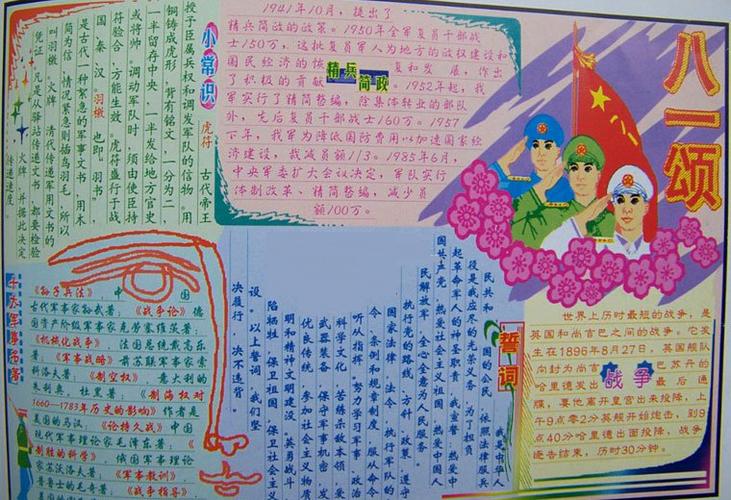 八一颂
1941年10月，提出了
精兵简政的政策。1950年全军复员干部战
士150万，这批复员军人为地方的政权建设和
国民经济的恢
复和发展，作出
了积极的贡献
。1952年起，我
精兵简政
军实行了精简整编，除集体转业的部队
外，先后复员干部战士160万。1957
下年，我军为降低国防费用以加速国家经
济建设，裁减员额1/3。1985年6月，
中央军委扩大会议决定，军队实行
体制改革、精简整编，减少员
额100万。
小常识
虎符 古代帝王
授予臣属兵权和调发军队的信物。用
铜铸成虎形，背有铭文，一分为二，
一半留存中央，一半发给地方官吏
或将帅。调动军队时，须由使臣持
符验合，方能生效。虎符盛行于战
国 秦 汉。羽檄 也即“羽书”，
是古代一种紧急的军事文书，用木
简为信，情况紧急则插鸟羽毛，所以
叫羽檄。火牌 清代传递军用文书的
凭证，凡是从驿站传递文书，都要检验
火牌，并据此决定
传递速度。
《孙子兵法》，中国
古代军事家孙武著；《战争论》德
国资产阶级军事家克劳塞维茨著；
《机械化战争》 法国总统戴高乐
著；《军事战略》前苏联军事家索
科洛夫著；《制空权》，意大利的
朱利奥，杜黑著；《制海权对
1660—1783年历史的影响》作者是
美国的马汉；《论持久战》中国
现代军事理论家毛泽东著；《
制胜的科学》，俄国军事理论
家苏沃洛夫著；《军事教训》
普鲁士的毛奇著；《战争指导》
誓词
我是中华人
民共和 国的公民 依照法律服兵
役是我应尽的光荣义务 为了担负
起革命军人的神圣职责 我宣誓：热爱中
国共产党，热爱社会主义祖国，热爱中国人
民解放军，全心全意为人民服务。
执行党的路线、方针、政策，遵守
国家法律、法令，执行军队的
命令、条例和规章制度，服从命令，
听从指挥；努力学习军事、政治
科学文化 苦练杀敌本领，爱
武器装备，保守军事机密，发
优良传统，参加社会主义物质
明和精神文明建设，英勇战斗
陷牺牲，保卫祖国，保卫社会主义
设。以上誓词，我们坚
决履行，决不违背。
世界上历时最短的战争，是
英国和尚吉巴之间的战争。它发
生在1896年8月27日，英国舰队
向封为尚吉
巴苏丹的
哈里德发出
最后通
战争
牒，要他离开皇宫出来投降，上
午9点零2分英舰开始炮击，到9
点40分哈里德出面投降，战争
遂告结束，历时30分钟。